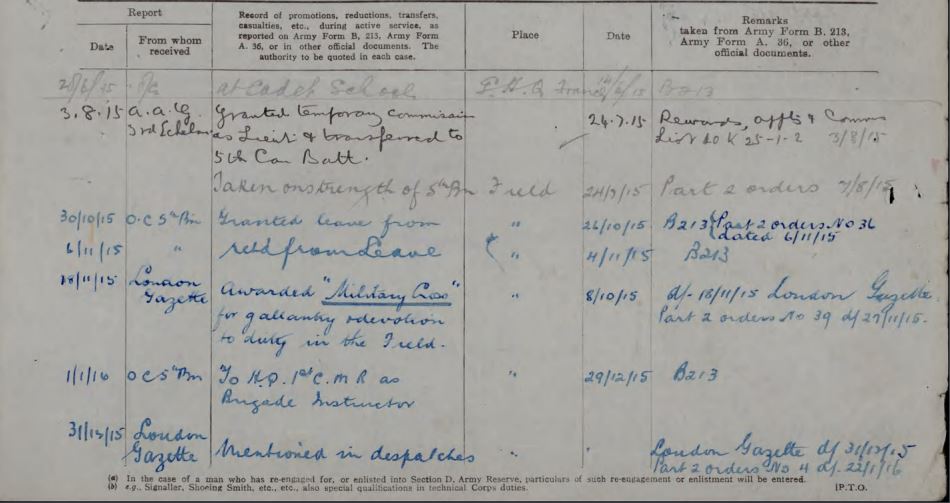 Report
Date
From whom received
Record of promotions, reductions, transfers, casualties, etc., during active service, as reported on Army Form B, 213, Army Form A. 36, or in other official documents. The authority to be quoted in each case.
Place
Date
Remarks
taken from Army Form B. 213, Army Form A. 36, or other official documents.
at Cadet School G.H.Q France B213
3.8.15 A.A.G. Granted temporary commission 24.7.15 Rewards, appts & Comms
3rd Echelon as Lieut & transferred to List 20 K 25-1-2 3/8/15
5th Can Batt.
Taken on strength of 5th Bn Field Part 2 orders 7/8/15
30/10/15 O.C 5th Bn Granted leave from " 26/10/15 B213 Part 2 orders No 36
dated 6/11/15
6/11/15 " retd from Leave " 4/11/15 B213
18/11/15 London Awarded "Military Cross" " 8/10/15 d/- 18/11/15 London Gazette.
Gazette for gallantry & devotion Part 2 orders No 39 d/ 27/11/15.
to duty in the Field.
1/1/16 OC 5th Bn To H.Q. 1st C.M.R as " 29/12/15 B213
Brigade Instructor
31/12/15 London
Gazette Mentioned in despatches " " London Gazette d/ 31/12/15
Part 2 orders No 4 d/ 22/1/16
(a) In the case of a man who has re-engaged for, or enlisted into Section D. Army Reserve, particulars of such re-engagement or enlistment will be entered.
(b) e.g., Signaller, Shoeing Smith, etc., etc., also special qualifications in technical Corps duties.
[P.T.O.